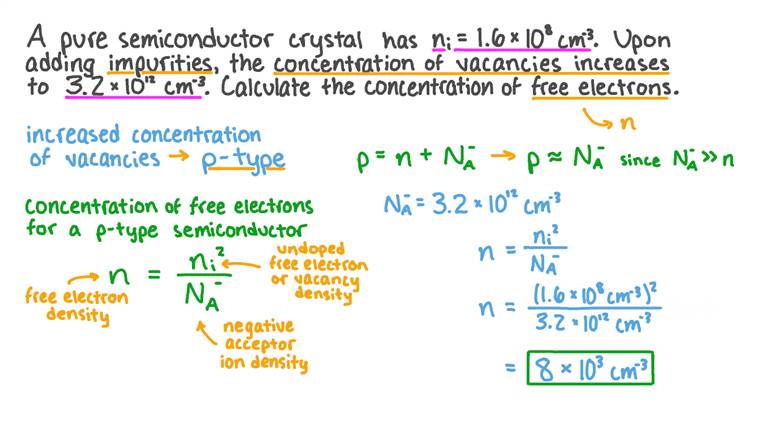 A pure semiconductor crystal has nᵢ = 1.6 × 10⁸ cm⁻³. Upon
adding impurities, the concentration of vacancies increases
to 3.2 × 10¹² cm⁻³. Calculate the concentration of free electrons.
n
increased concentration
of vacancies → p-type
p = n + N_A⁻ → p ≈ N_A⁻ since N_A⁻ ≫ n
concentration of free electrons
for a p-type semiconductor
n = nᵢ² / N_A⁻
free electron
density
undoped
free electron
or vacancy
density
negative
acceptor
ion density
N_A⁻ = 3.2 × 10¹² cm⁻³
n = nᵢ² / N_A⁻
n = (1.6 × 10⁸ cm⁻³)² / 3.2 × 10¹² cm⁻³
= 8 × 10³ cm⁻³